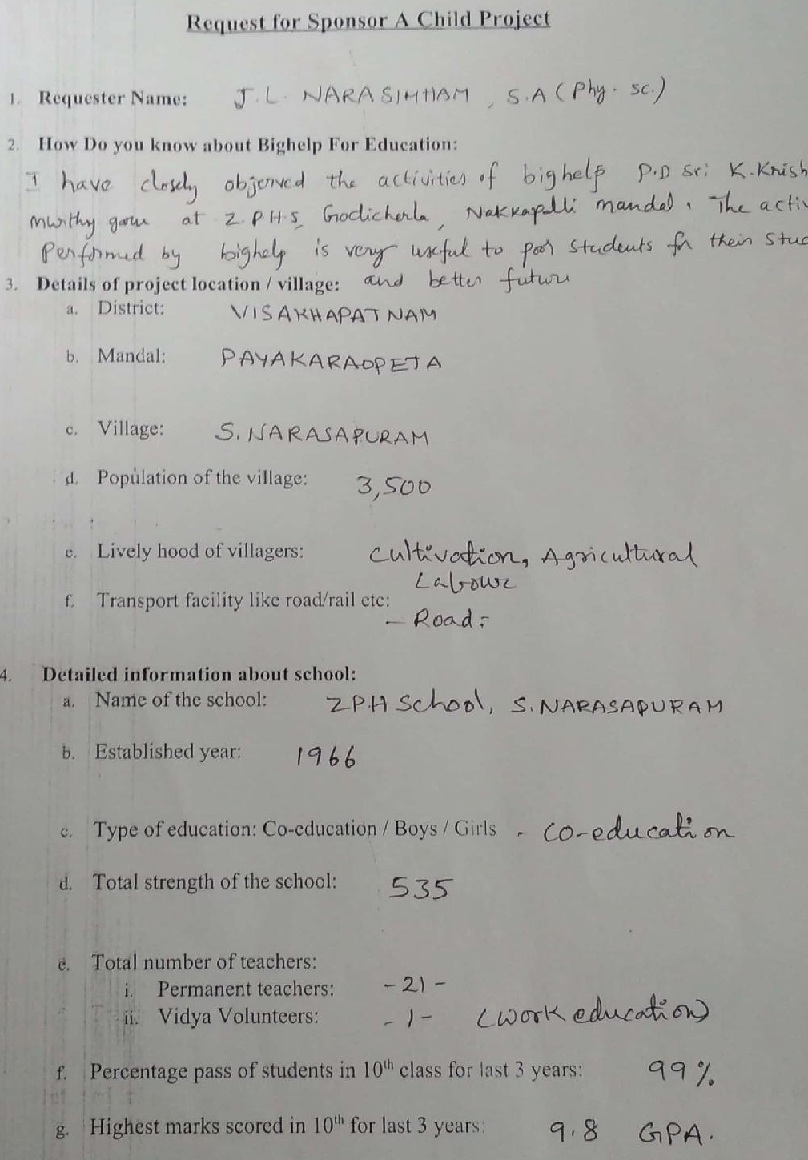 Request for Sponsor A Child Project
1. Requester Name: J.L. NARASIMHAM, S.A (Phy. sc.)
2. How Do you know about Bighelp For Education:
I have closely observed the activities of bighelp P.D Sri K.Krish
murthy garu at Z.P.H.S, Godicherla, Nakkapalli mandal. The activ
Performed by bighelp is very useful to poor students for their Stud
and better future
3. Details of project location / village:
a. District: VISAKHAPATNAM
b. Mandal: PAYAKARAOPETA
c. Village: S. NARASAPURAM
d. Population of the village: 3,500
e. Lively hood of villagers: Cultivation, Agricultural
Labour
f. Transport facility like road/rail etc:
- Road:
4. Detailed information about school:
a. Name of the school: ZPH School, S. NARASAPURAM
b. Established year: 1966
c. Type of education: Co-education / Boys / Girls - Co-education
d. Total strength of the school: 535
e. Total number of teachers:
i. Permanent teachers: -21-
ii. Vidya Volunteers: -1- (work education)
f. Percentage pass of students in 10th class for last 3 years: 99%
g. Highest marks scored in 10th for last 3 years: 9.8 GPA.